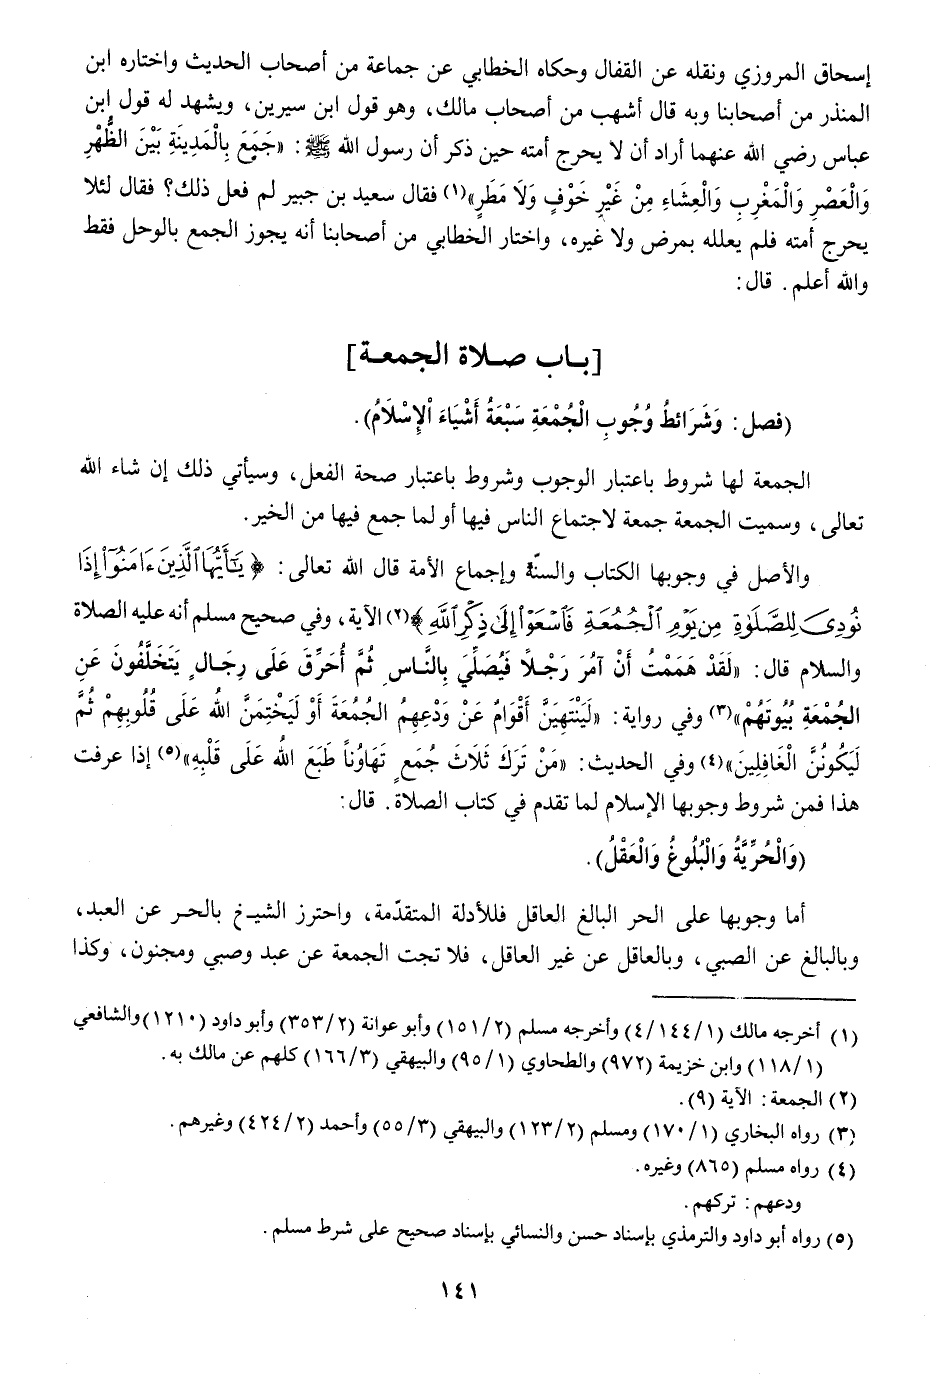 إسحاق المروزي ونقله عن القفال وحكاه الخطابي عن جماعة من أصحاب الحديث واختاره ابن
المنذر من أصحابنا وبه قال أشهب من أصحاب مالك، وهو قول ابن سيرين، ويشهد له قول ابن
عباس رضي الله عنهما أراد أن لا يحرج أمته حين ذكر أن رسول الله ﷺ: «جَمَعَ بِالْمَدِينَةِ بَيْنَ الظُّهْرِ
وَالْعَصْرِ وَالْمَغْرِبِ وَالْعِشَاءِ مِنْ غَيْرِ خَوْفٍ وَلَا مَطَرٍ»(١) فقال سعيد بن جبير لم فعل ذلك؟ فقال لئلا
يحرج أمته فلم يعلله بمرض ولا غيره، واختار الخطابي من أصحابنا أنه يجوز الجمع بالوحل فقط
والله أعلم. قال:
[باب صلاة الجمعة]
(فصل: وَشَرَائطُ وُجُوبِ الْجُمْعَةِ سَبْعَةُ أَشْيَاءَ الْإِسْلَامُ).
الجمعة لها شروط باعتبار الوجوب وشروط باعتبار صحة الفعل، وسيأتي ذلك إن شاء الله
تعالى، وسميت الجمعة جمعة لاجتماع الناس فيها أو لما جمع فيها من الخير.
والأصل في وجوبها الكتاب والسنّة وإجماع الأمة قال الله تعالى: ﴿يَٰٓأَيُّهَا ٱلَّذِينَ ءَامَنُوٓا۟ إِذَا
نُودِىَ لِلصَّلَوٰةِ مِن يَوْمِ ٱلْجُمُعَةِ فَٱسْعَوْا۟ إِلَىٰ ذِكْرِ ٱللَّهِ﴾(٢) الآية، وفي صحيح مسلم أنه عليه الصلاة
والسلام قال: «لَقَدْ هَمَمْتُ أَنْ آمُرَ رَجُلًا فَيُصَلِّيَ بِالنَّاسِ ثُمَّ أُحَرِّقَ عَلَى رِجَالٍ يَتَخَلَّفُونَ عَنِ
الجُمْعَةِ بُيُوتَهُمْ»(٣) وفي رواية: «لَيَنْتَهِيَنَّ أَقْوَامٌ عَنْ وَدْعِهِمُ الجُمُعَةَ أَوْ لَيَخْتِمَنَّ اللهُ عَلَى قُلُوبِهِمْ ثُمَّ
لَيَكُونُنَّ الْغَافِلِينَ»(٤) وفي الحديث: «مَنْ تَرَكَ ثَلَاثَ جُمَعٍ تَهَاوُناً طَبَعَ اللهُ عَلَى قَلْبِهِ»(٥) إذا عرفت
هذا فمن شروط وجوبها الإسلام لما تقدم في كتاب الصلاة. قال:
(وَالْحُرِّيَّةُ وَالْبُلُوغُ وَالْعَقْلُ).
أما وجوبها على الحر البالغ العاقل فللأدلة المتقدّمة، واحترز الشيخ بالحر عن العبد،
وبالبالغ عن الصبي، وبالعاقل عن غير العاقل، فلا تجت الجمعة عن عبد وصبي ومجنون، وكذا
(١) أخرجه مالك (٤/١٤٤/١) وأخرجه مسلم (١٥١/٢) وأبو عوانة (٣٥٣/٢) وأبو داود (١٢١٠) والشافعي
(١١٨/١) وابن خزيمة (٩٧٢) والطحاوي (٩٥/١) والبيهقي (١٦٦/٣) كلهم عن مالك به.
(٢) الجمعة: الآية (٩).
(٣) رواه البخاري (١٧٠/١) ومسلم (١٢٣/٢) والبيهقي (٥٥/٣) وأحمد (٤٢٤/٢) وغيرهم.
(٤) رواه مسلم (٨٦٥) وغيره.
ودعهم: تركهم.
(٥) رواه أبو داود والترمذي بإسناد حسن والنسائي بإسناد صحيح على شرط مسلم.
١٤١